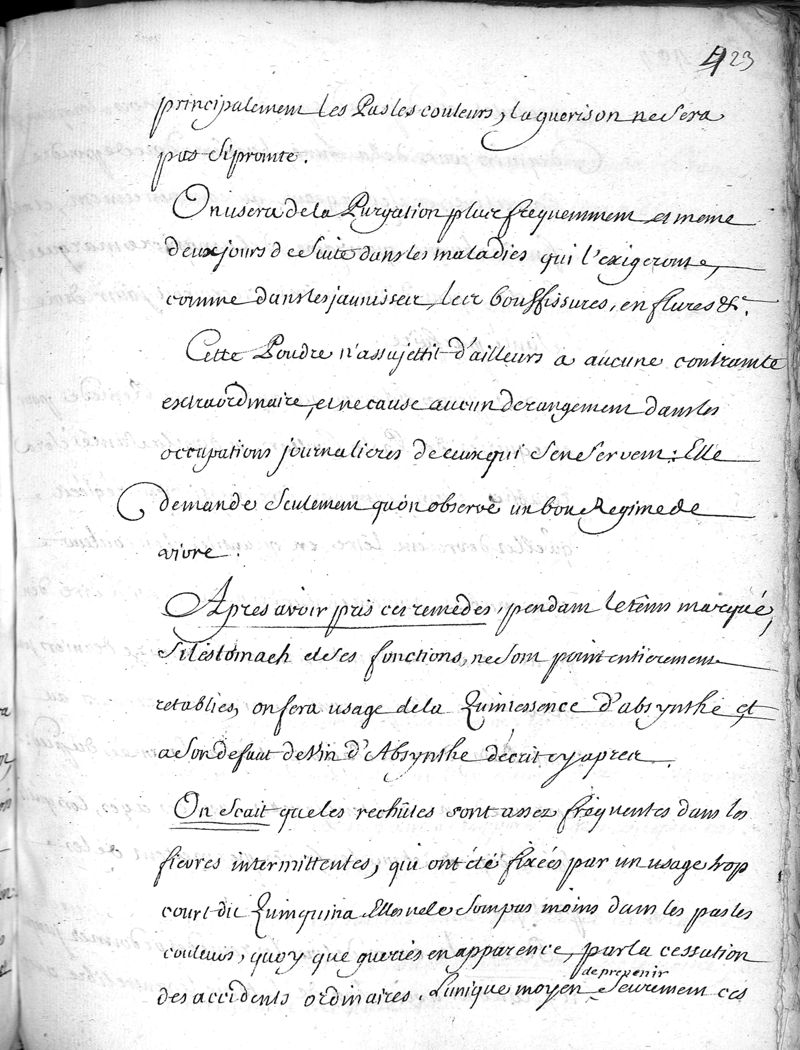 423
principalement les Pasles couleurs, la guerison ne sera
pas si promte.
On usera de la Purgation plus frequemment, et meme
deux jours de suite dans les maladies qui l'exigeront,
comme dans les jaunisses, les bouffissures, enflures &c.
Cette Poudre n'assujettit d'ailleurs a aucune contrainte
extraordinaire, et ne cause aucun derangement dans les
occupations journalieres de ceux qui s'en servent: Elle
demande seulement qu'on observe un bon Regime de
vivre.
Apres avoir pris ces remedes, pendant le têms marqué,
si l'estomach et ses fonctions, ne sont point entierement
retablies, on fera usage de la Quintessence d'absynthe et
a son defaut de Vin d'Absynthe décrit cy apres.
On scait que les rechûtes sont assez fréquentes dans les
fievres intermittentes, qui ont été fixées par un usage trop
court du Quinquina. Elles ne le sont pas moins dans les pasles
couleurs, quoy que gueries en apparence, par la cessation
des accidents ordinaires. L'unique moyen de prevenir seurement ces